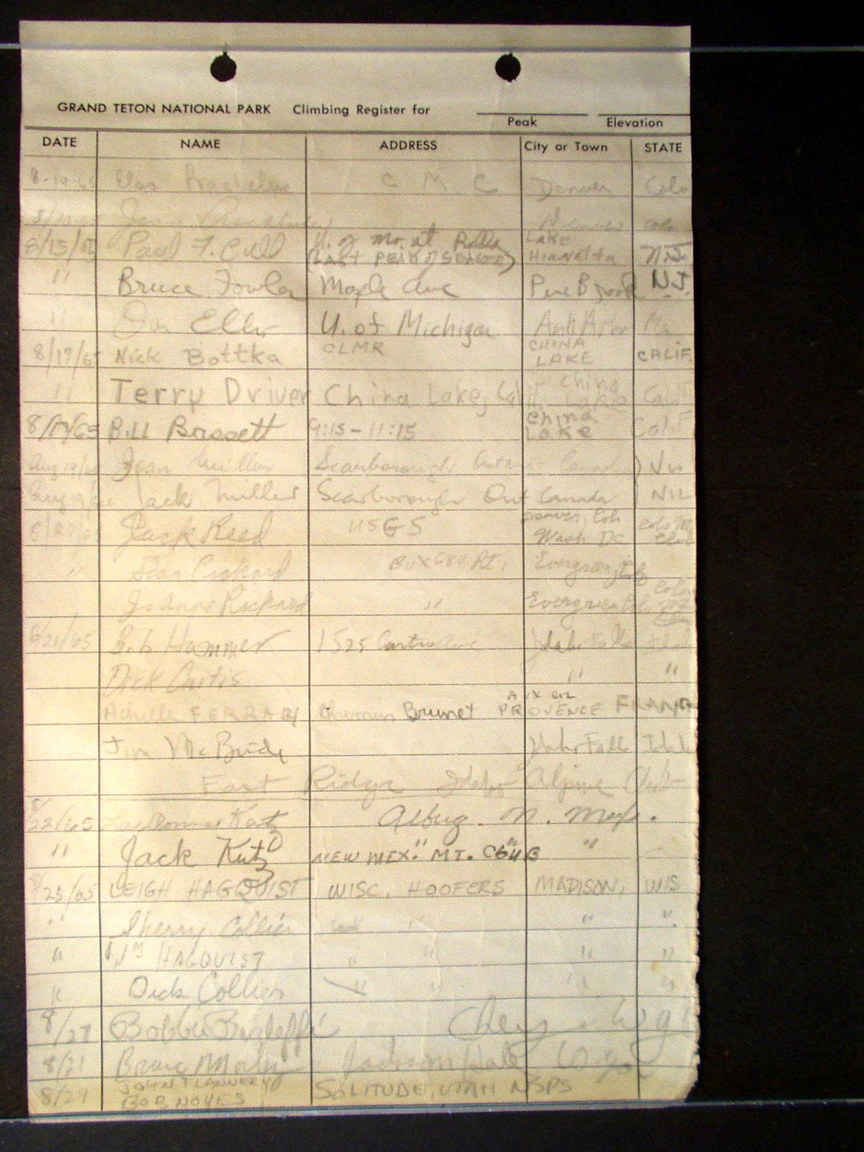 GRAND TETON NATIONAL PARK Climbing Register for
Peak Elevation
DATE NAME ADDRESS City or Town STATE
8-10-65 C M C Denver Colo
Colo
8/15/65 Paul F. Cull U. of Mo. at Rolla Lake Hiawatha N.J.
(LAST PEAK OF SEASON)
" Bruce Fowler Maple Ave Pine Brook N.J.
" Eller U. of Michigan Ann Arbor
8/17/65 Nick Bottka CLMR CHINA LAKE CALIF
" Terry Driver China Lake, Calif China Lake Calif
8/17/65 Bill Bassett 9:15-11:15 China Lake Calif
Aug 19/65 Joan Miller Scarborough Ontario Canada )
Aug 19/65 Jack Miller Scarborough Ont Canada ) NIL
Jack Reed USGS Denver, Colo Wash DC Colo Mt Club
" Rickard Box 680 Rt 1 Evergreen
JoAnne Rickard " Evergreen
8/21/65 Bob Hammer 1525 Idaho Falls Idaho
Dick Curtis " "
Achille FERRARI Brunet AIX en PROVENCE FRANCE
Jim McBride Idaho Fall Idah
East Ridge Idaho Alpine Club
8/22/65 Katz Albuq. N. Mex.
" Jack Kutz NEW MEX. MT. CLUB "
8/25/65 LEIGH HAGQUIST WISC. HOOFERS MADISON, WIS
" Sherry Collier " " "
" Jim HAGQUIST " " " "
" Dick Collier " " " "
8/27 Bobbie Chey Wyo
8/21 Bruce Jackson Hole Wyo
8/29 JOHN FLANNERY SOLITUDE, UTAH NSPS
BOB NOYES